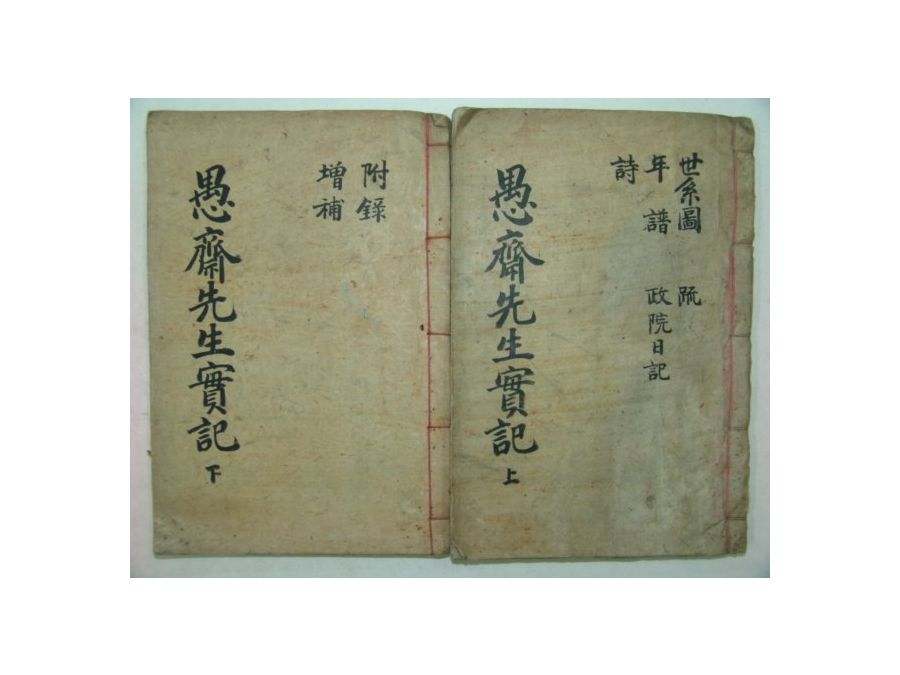 世系圖 疏
年譜 政院日記
詩
愚齋先生實記 上
附錄
增補
愚齋先生實記 下